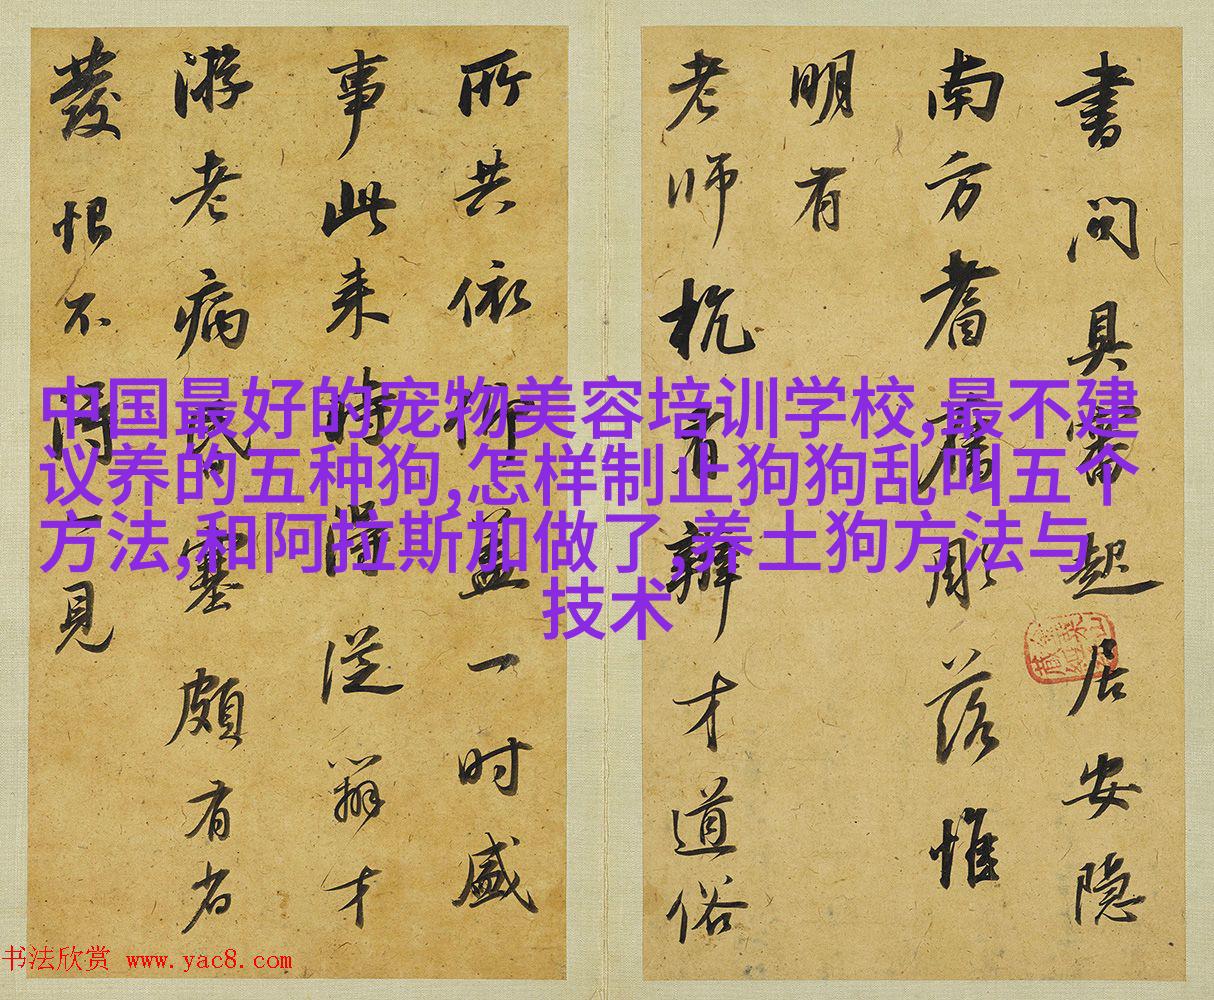 書問具審起居安隱
南方耆舊彫落惟
明有
老師杭有辯才道俗
所共依仰蓋一時盛
事此来時得從辯才
游老病昬塞頗有省
發恨不一見
中国最好的宠物美容培训学校,最不建
议养的五种狗,怎样制止狗狗乱叫五个
方法,和阿拉斯加做了,养土狗方法与
技术
书法欣赏 www.yac8.com